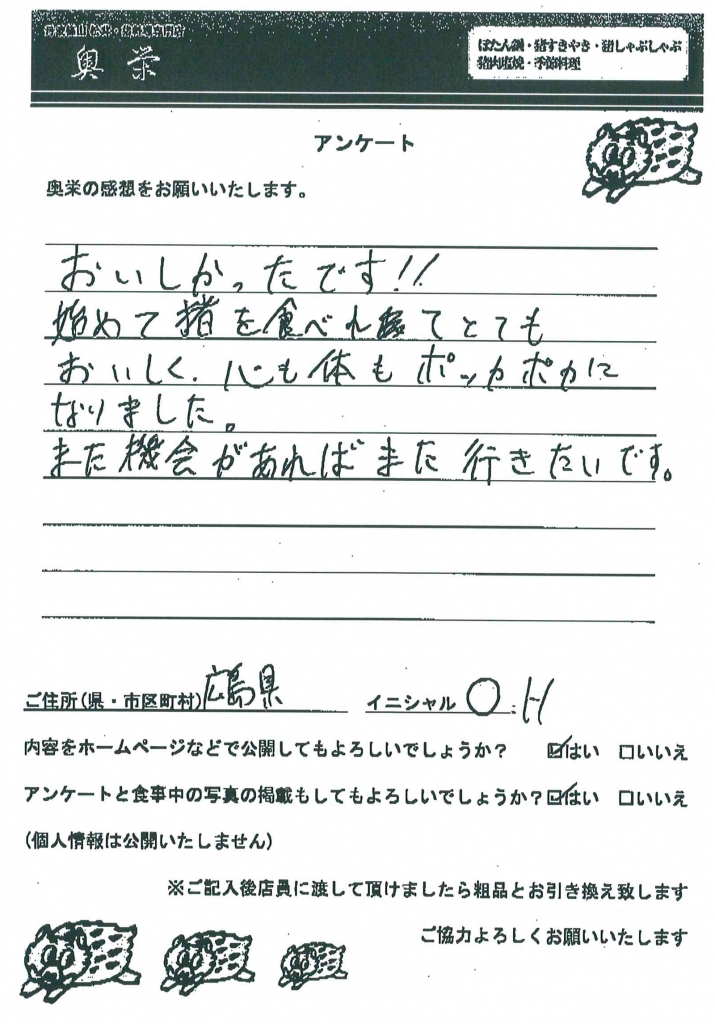 奥栄
ぼたん鍋・猪すきやき・猪しゃぶしゃぶ
猪肉塩焼・季節料理
アンケート
奥栄の感想をお願いいたします。
おいしかったです!!
始めて猪を食べれてとても
おいしく、心も体もポッカポカに
なりました。
また機会があればまた行きたいです。
ご住所(県・市区町村)広島県 イニシャル O.H
内容をホームページなどで公開してもよろしいでしょうか? ☑はい □いいえ
アンケートと食事中の写真の掲載もしてもよろしいでしょうか?☑はい □いいえ
(個人情報は公開いたしません)
※ご記入後店員に渡して頂けましたら粗品とお引き換え致します
ご協力よろしくお願いいたします